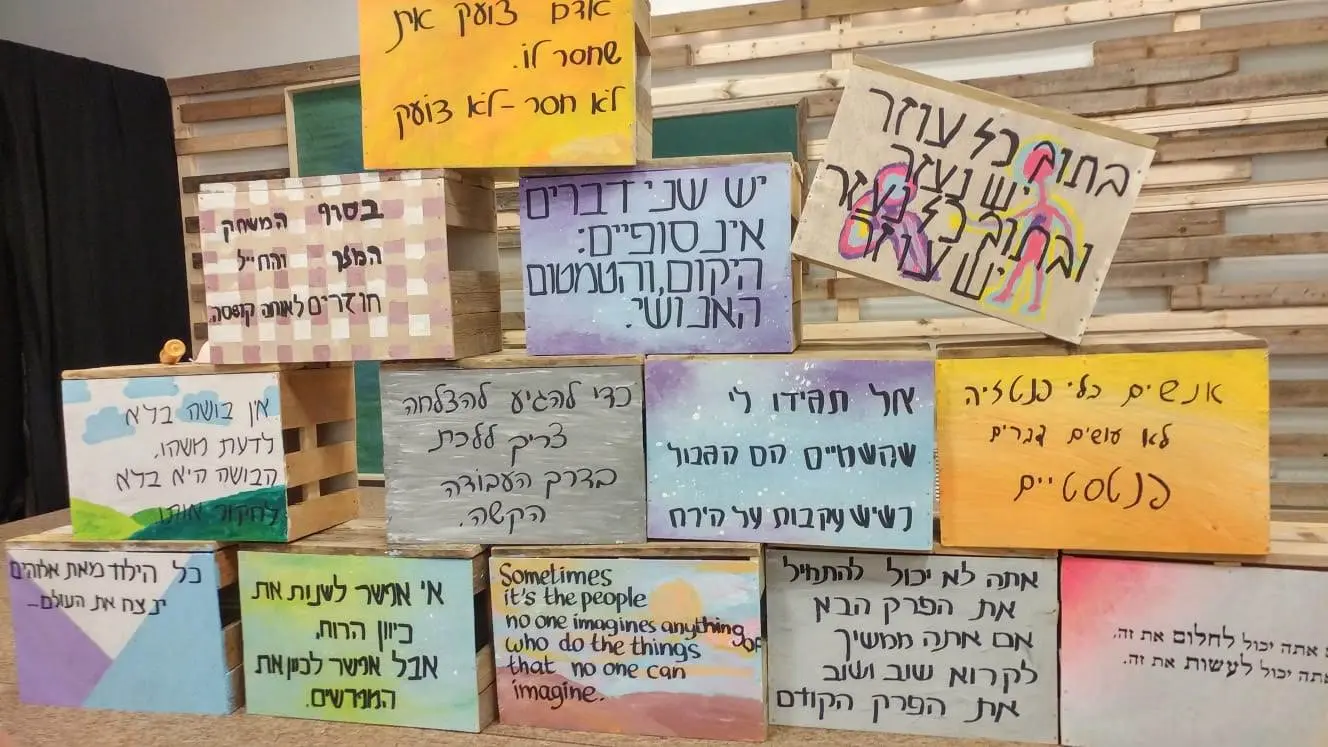 אדם צועק את
שחסר לו.
לא חסר - לא צועק
בסוף המשחק
המלך והחייל
חוזרים לאותה קופסה.
יש שני דברים
אינסופיים:
היקום, והטמטום
האנושי.
בתוך כל עוזר
יש נעזר
ובתוך כל נעזר
יש עוזר
אין בושה בלא
לדעת משהו.
הבושה היא בלא
לחקור אותו.
כדי להגיע להצלחה
צריך ללכת
בדרך העבודה
הקשה.
אל תגידו לי
שהשמיים הם הגבול
כשיש עקבות על הירח
אנשים בלי פנטזיה
לא עושים דברים
פנטסטיים
כל הילוד מאת אלוהים
ינצח את העולם...
אי אפשר לשנות את
כיוון הרוח,
אבל אפשר לכוון את
המפרשים.
Sometimes
it's the people
no one imagines anything of
who do the things
that no one can
imagine.
אתה לא יכול להתחיל
את הפרק הבא
אם אתה ממשיך
לקרוא שוב ושוב
את הפרק הקודם
אתה יכול לחלום את זה,
אתה יכול לעשות את זה.